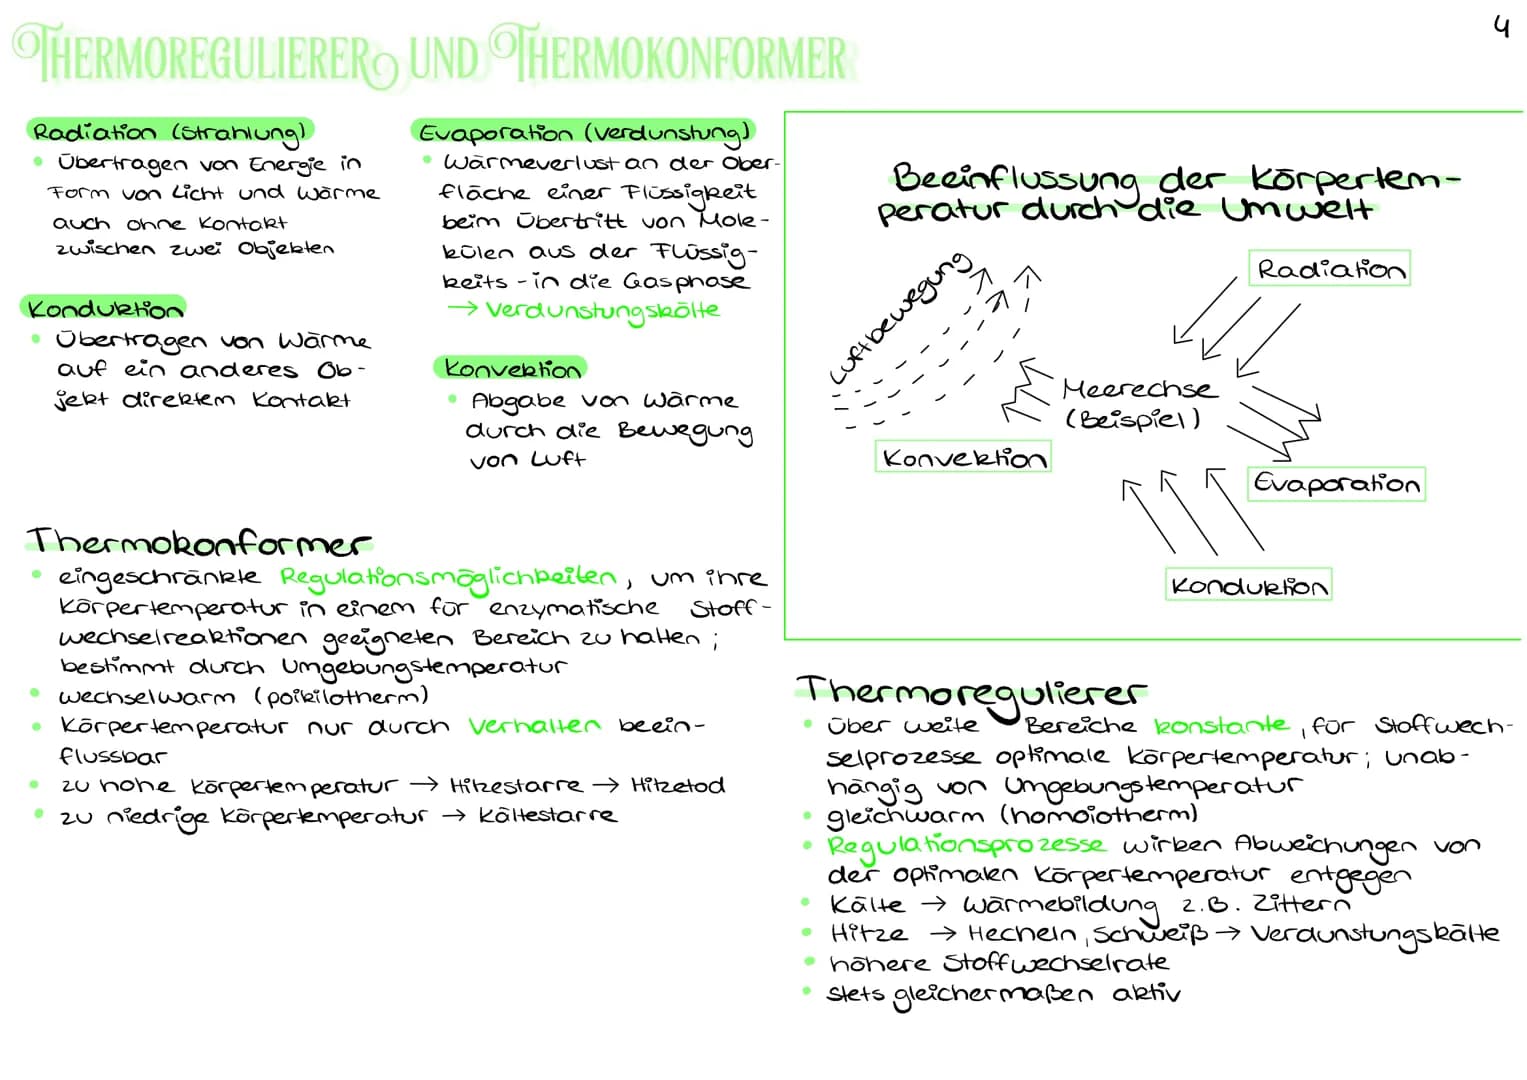 4
THERMOREGULIERER UND THERMOKONFORMER
Radiation (Strahlung)
• Übertragen von Energie in
Form von Licht und Wärme
auch ohne Kontakt
zwischen zwei Objekten
Konduktion
• Übertragen von Wärme
auf ein anderes Ob-
jekt direktem Kontakt
Evaporation (Verdunstung)
• Wärmeverlust an der Ober-
fläche einer Flüssigkeit
beim Übertritt von Mole-
külen aus der Flüssig-
keits - in die Gasphase
→ Verdunstungskälte
Konvektion
• Abgabe von Wärme
durch die Bewegung
von Luft
Beeinflussung der Körpertem-
peratur durch die Umwelt
Luftbewegung
Radiation
Meerechse
(Beispiel)
Konvektion
Evaporation
Konduktion
Thermokonformer
• eingeschränkte Regulationsmöglichkeiten, um ihre
Körpertemperatur in einem für enzymatische Stoff-
wechselreaktionen geeigneten Bereich zu halten;
bestimmt durch Umgebungstemperatur
• wechselwarm (poikilotherm)
• Körpertemperatur nur durch Verhalten beein-
flussbar
• zu hohe Körpertemperatur → Hitzestarre → Hitzetod
• zu niedrige Körpertemperatur → Kältestarre
Thermoregulierer
• Über weite Bereiche konstante, für Stoffwech-
selprozesse optimale Körpertemperatur; unab-
hängig von Umgebungstemperatur
• gleichwarm (homoiotherm)
• Regulationsprozesse wirken Abweichungen von
der optimalen Körpertemperatur entgegen
• Kälte → Wärmebildung z.B. Zittern
• Hitze → Hecheln, Schweiß → Verdunstungskälte
• höhere Stoffwechselrate
• stets gleichermaßen aktiv